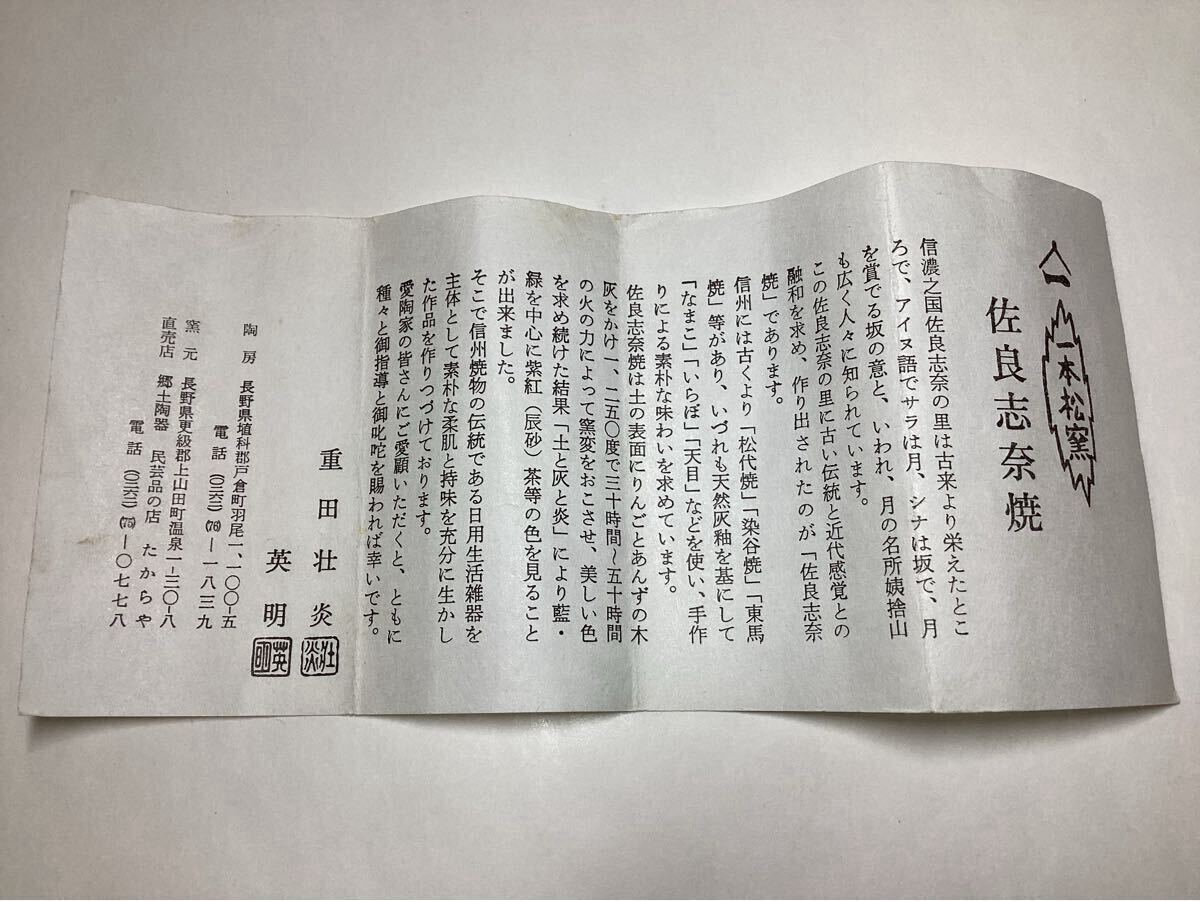 一本松窯
佐良志奈焼
信濃之国佐良志奈の里は古来より栄えたとこ
ろで、アイヌ語でサラは月、シナは坂で、月
を賞でる坂の意と、いわれ、月の名所姨捨山
も広く人々に知られています。
この佐良志奈の里に古い伝統と近代感覚との
融和を求め、作り出されたのが「佐良志奈
焼」であります。
信州には古くより「松代焼」「染谷焼」「東馬
焼」等があり、いづれも天然灰釉を基にして
「なまこ」「いらぼ」「天目」などを使い、手作
りによる素朴な味わいを求めています。
佐良志奈焼は土の表面にりんごとあんずの木
灰をかけ一、二五〇度で三十時間〜五十時間
の火の力によって窯変をおこさせ、美しい色
を求め続けた結果「土と灰と炎」により藍・
緑を中心に紫紅（辰砂）茶等の色を見ること
が出来ました。
そこで信州焼物の伝統である日用生活雑器を
主体として素朴な柔肌と持味を充分に生かし
た作品を作りつづけております。
愛陶家の皆さんにご愛顧いただくと、ともに
種々と御指導と御叱咤を賜われば幸いです。
重田壮炎 壮炎
英明 英明
陶房 長野県埴科郡戸倉町羽尾一、一〇〇ー五
電話（〇二六二）（76）ー一八三九
窯元 長野県更級郡上山田町温泉一ー三〇ー八
直売店 郷土陶器 民芸品の店 たからや
電話（〇二六二）（75）ー〇七七八